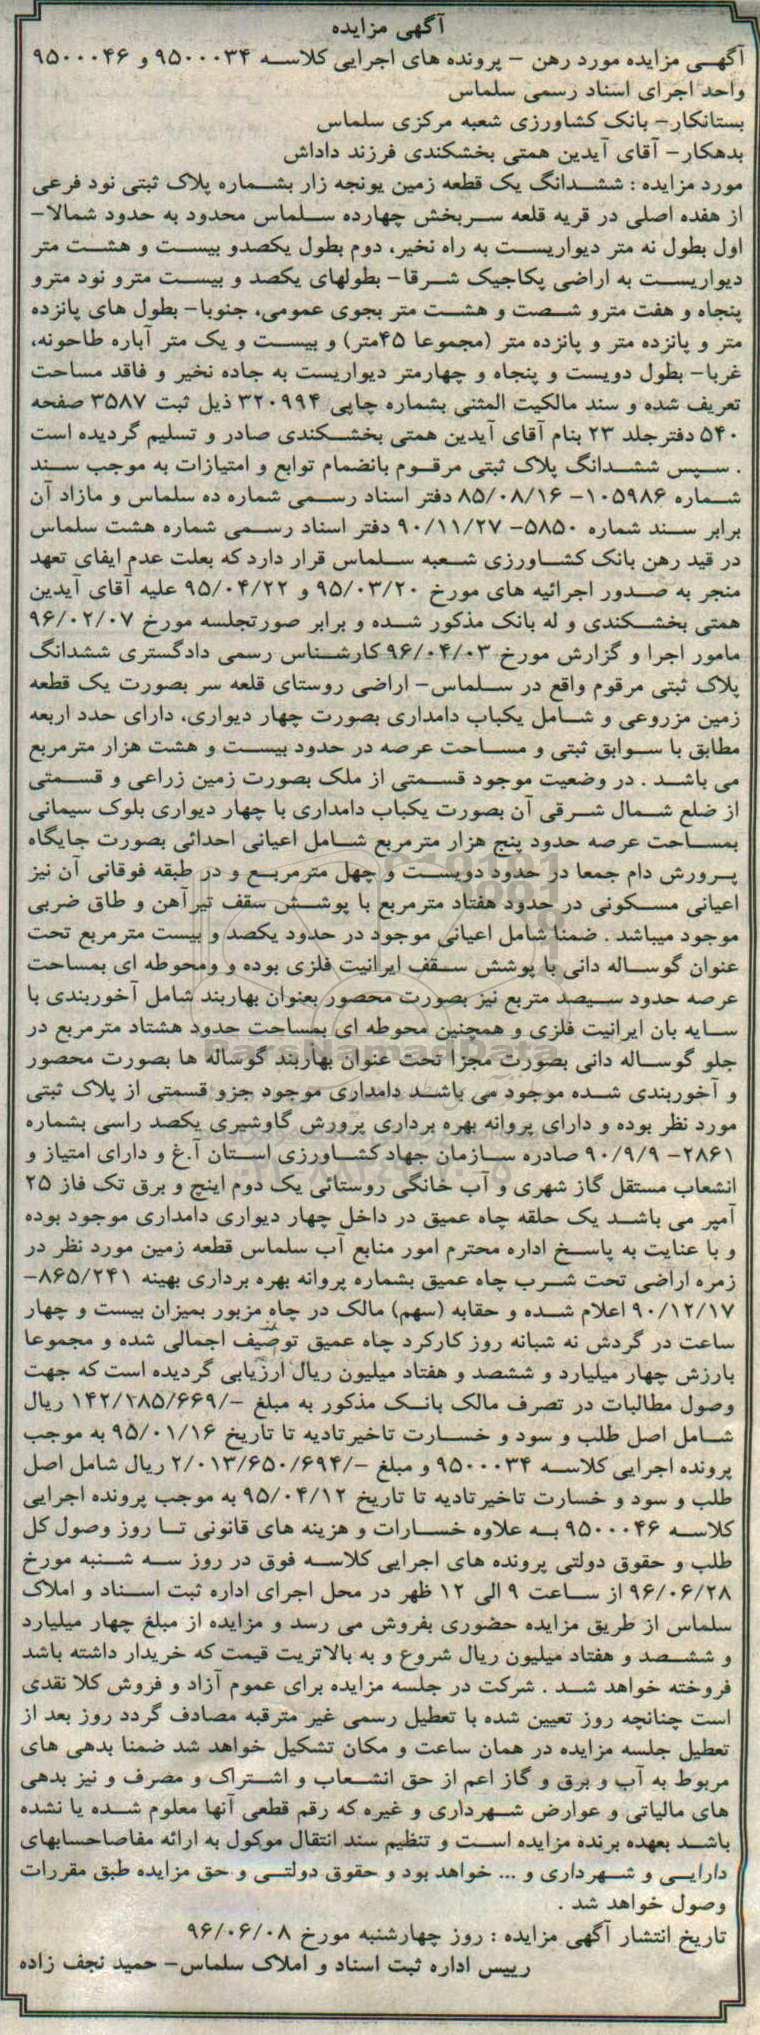 آگهی مزایده
آگهی مزایده مورد رهن - پرونده های اجرایی کلاسه ۹۵۰۰۰۳۴ و ۹۵۰۰۰۴۶
واحد اجرای اسناد رسمی سلماس
بستانکار- بانک کشاورزی شعبه مرکزی سلماس
بدهکار- آقای آیدین همتی بخشکندی فرزند داداش
مورد مزایده : ششدانگ یک قطعه زمین یونجه زار بشماره پلاک ثبتی نود فرعی
از هفده اصلی در قریه قلعه سربخش چهارده سلماس محدود به حدود شمالا-
اول بطول نه متر دیواریست به راه نخیر، دوم بطول یکصدو بیست و هشت متر
دیواریست به اراضی پکاجیک شرقا- بطولهای یکصد و بیست مترو نود مترو
پنجاه و هفت مترو شصت و هشت متر بجوی عمومی، جنوبا- بطول های پانزده
متر و پانزده متر و پانزده متر (مجموعا ۴۵متر) و بیست و یک متر آباره طاحونه،
غربا- بطول دویست و پنجاه و چهارمتر دیواریست به جاده نخیر و فاقد مساحت
تعریف شده و سند مالکیت المثنی بشماره چاپی ۳۲۰۹۹۴ ذیل ثبت ۳۵۸۷ صفحه
۵۴۰ دفترجلد ۲۳ بنام آقای آیدین همتی بخشکندی صادر و تسلیم گردیده است
. سپس ششدانگ پلاک ثبتی مرقوم بانضمام توابع و امتیازات به موجب سند
شماره ۱۰۵۹۸۶- ۸۵/۰۸/۱۶ دفتر اسناد رسمی شماره ده سلماس و مازاد آن
برابر سند شماره ۵۸۵۰- ۹۰/۱۱/۲۷ دفتر اسناد رسمی شماره هشت سلماس
در قید رهن بانک کشاورزی شعبه سلماس قرار دارد که بعلت عدم ایفای تعهد
منجر به صدور اجرائیه های مورخ ۹۵/۰۳/۲۰ و ۹۵/۰۴/۲۲ علیه آقای آیدین
همتی بخشکندی و له بانک مذکور شده و برابر صورتجلسه مورخ ۹۶/۰۲/۰۷
مامور اجرا و گزارش مورخ ۹۶/۰۴/۰۳ کارشناس رسمی دادگستری ششدانگ
پلاک ثبتی مرقوم واقع در سلماس- اراضی روستای قلعه سر بصورت یک قطعه
زمین مزروعی و شامل یکباب دامداری بصورت چهار دیواری، دارای حدد اربعه
مطابق با سوابق ثبتی و مساحت عرصه در حدود بیست و هشت هزار مترمربع
می باشد . در وضعیت موجود قسمتی از ملک بصورت زمین زراعی و قسمتی
از ضلع شمال شرقی آن بصورت یکباب دامداری با چهار دیواری بلوک سیمانی
بمساحت عرصه حدود پنج هزار مترمربع شامل اعیانی احداثی بصورت جایگاه
پرورش دام جمعا در حدود دویست و چهل مترمربع و در طبقه فوقانی آن نیز
اعیانی مسکونی در حدود هفتاد مترمربع با پوشش سقف تیرآهن و طاق ضربی
موجود میباشد . ضمنا شامل اعیانی موجود در حدود یکصد و بیست مترمربع تحت
عنوان گوساله دانی با پوشش سقف ایرانیت فلزی بوده و ومحوطه ای بمساحت
عرصه حدود سیصد متربع نیز بصورت محصور بعنوان بهاربند شامل آخوربندی با
سایه بان ایرانیت فلزی و همچنین محوطه ای بمساحت حدود هشتاد مترمربع در
جلو گوساله دانی بصورت مجزا تحت عنوان بهاربند گوساله ها بصورت محصور
و آخوربندی شده موجود می باشد دامداری موجود جزو قسمتی از پلاک ثبتی
مورد نظر بوده و دارای پروانه بهره برداری پرورش گاوشیری یکصد راسی بشماره
۲۸۶۱- ۹۰/۹/۹ صادره سازمان جهاد کشاورزی استان آ.غ و دارای امتیاز و
انشعاب مستقل گاز شهری و آب خانگی روستائی یک دوم اینچ و برق تک فاز ۲۵
آمپر می باشد یک حلقه چاه عمیق در داخل چهار دیواری دامداری موجود بوده
و با عنایت به پاسخ اداره محترم امور منابع آب سلماس قطعه زمین مورد نظر در
زمره اراضی تحت شرب چاه عمیق بشماره پروانه بهره برداری بهینه ۸۶۵/۲۴۱-
۹۰/۱۲/۱۷ اعلام شده و حقابه (سهم) مالک در چاه مزبور بمیزان بیست و چهار
ساعت در گردش نه شبانه روز کارکرد چاه عمیق توصیف اجمالی شده و مجموعا
بارزش چهار میلیارد و ششصد و هفتاد میلیون ریال ارزیابی گردیده است که جهت
وصول مطالبات در تصرف مالک بانک مذکور به مبلغ -/۱۴۲/۲۸۵/۶۶۹ ریال
شامل اصل طلب و سود و خسارت تاخیرتادیه تا تاریخ ۹۵/۰۱/۱۶ به موجب
پرونده اجرایی کلاسه ۹۵۰۰۰۳۴ و مبلغ -/۲/۰۱۳/۶۵۰/۶۹۴ ریال شامل اصل
طلب و سود و خسارت تاخیرتادیه تا تاریخ ۹۵/۰۴/۱۲ به موجب پرونده اجرایی
کلاسه ۹۵۰۰۰۴۶ به علاوه خسارات و هزینه های قانونی تا روز وصول کل
طلب و حقوق دولتی پرونده های اجرایی کلاسه فوق در روز سه شنبه مورخ
۹۶/۰۶/۲۸ از ساعت ۹ الی ۱۲ ظهر در محل اجرای اداره ثبت اسناد و املاک
سلماس از طریق مزایده حضوری بفروش می رسد و مزایده از مبلغ چهار میلیارد
و ششصد و هفتاد میلیون ریال شروع و به بالاتریت قیمت که خریدار داشته باشد
فروخته خواهد شد . شرکت در جلسه مزایده برای عموم آزاد و فروش کلا نقدی
است چنانچه روز تعیین شده با تعطیل رسمی غیر مترقبه مصادف گردد روز بعد از
تعطیل جلسه مزایده در همان ساعت و مکان تشکیل خواهد شد ضمنا بدهی های
مربوط به آب و برق و گاز اعم از حق انشعاب و اشتراک و مصرف و نیز بدهی
های مالیاتی و عوارض شهرداری و غیره که رقم قطعی آنها معلوم شده یا نشده
باشد بعهده برنده مزایده است و تنظیم سند انتقال موکول به ارائه مفاصاحسابهای
دارایی و شهرداری و ... خواهد بود و حقوق دولتی و حق مزایده طبق مقررات
وصول خواهد شد .
تاریخ انتشار آگهی مزایده : روز چهارشنبه مورخ ۹۶/۰۶/۰۸
رییس اداره ثبت اسناد و املاک سلماس- حمید نجف زاده